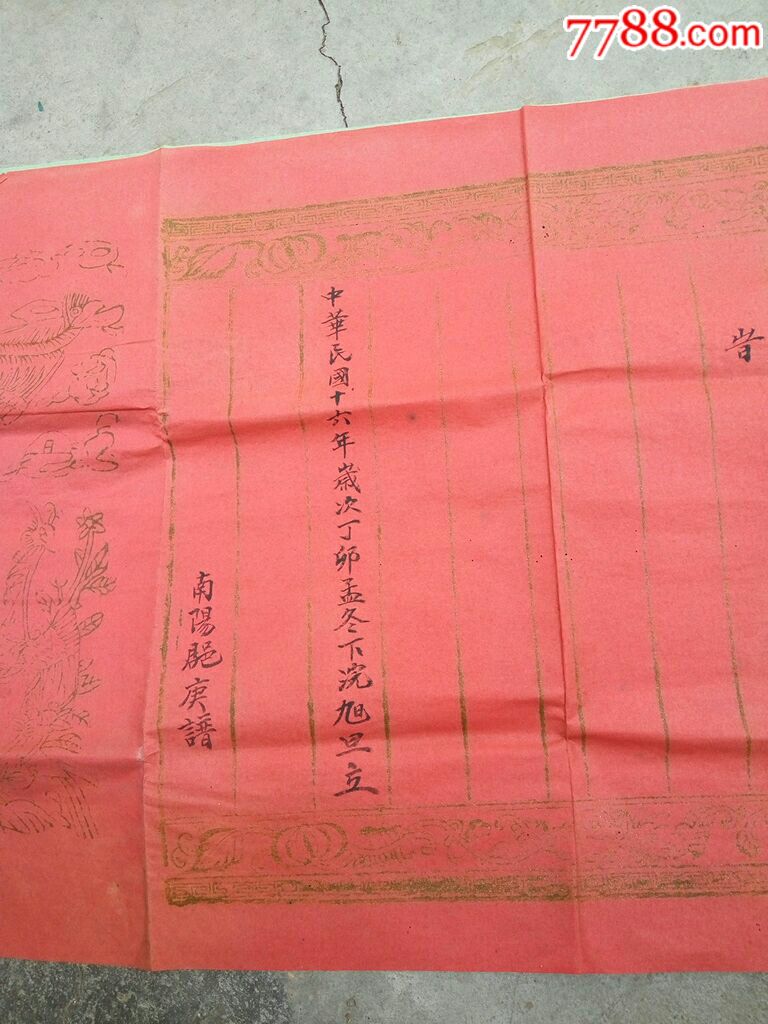 7788.com
旹
中華民國十六年歲次丁卯孟冬下浣旭旦立
南陽庚譜
日